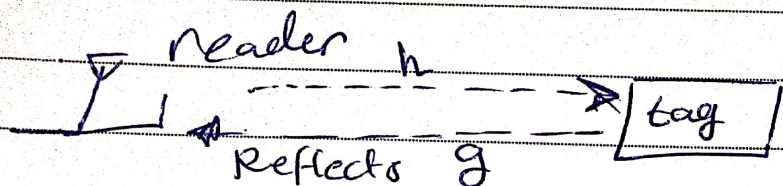 reader
h
tag
Reflects g